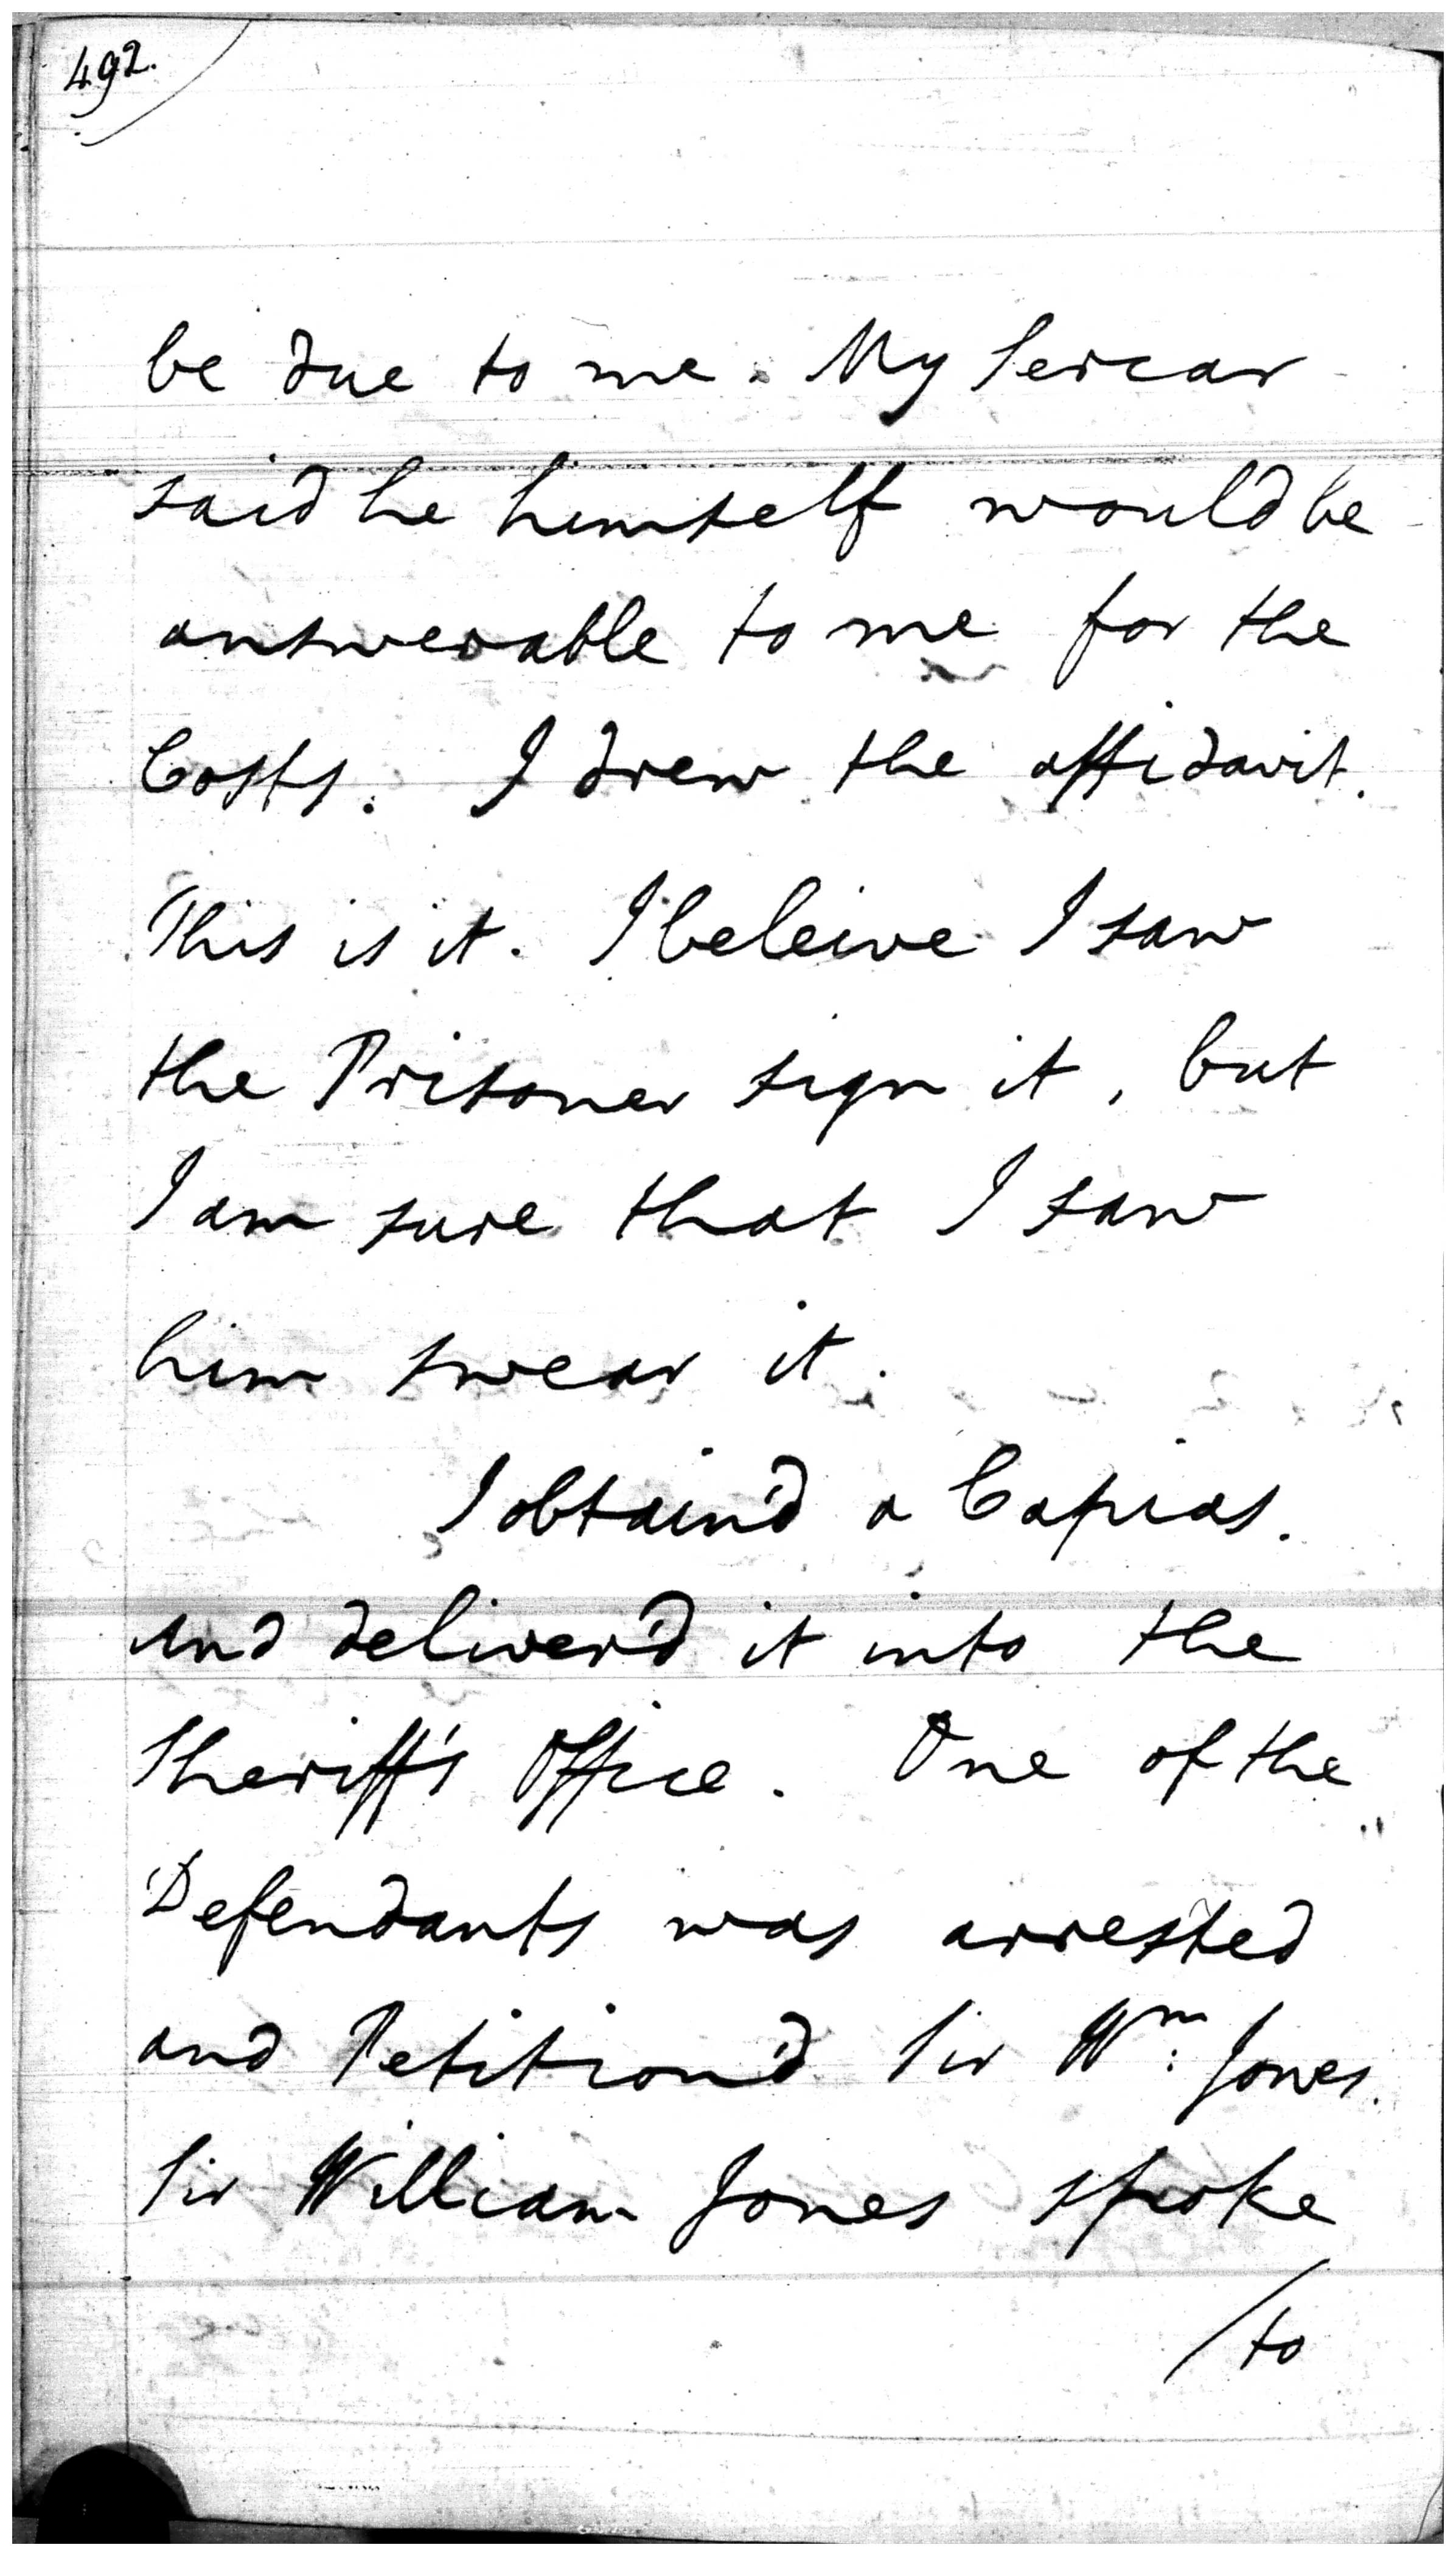 492.
be due to me. My Sercar
said he himself would be
answerable to me for the
Costs. I drew the affidavit.
This is it. I beleive I saw
the Prisoner sign it, but
I am sure that I saw
him swear it.
I obtain'd a Capias.
and deliver'd it into the
Sheriff's Office. One of the
Defendants was arrested
and Petition'd Sir Wm: Jones.
Sir William Jones spoke
/to